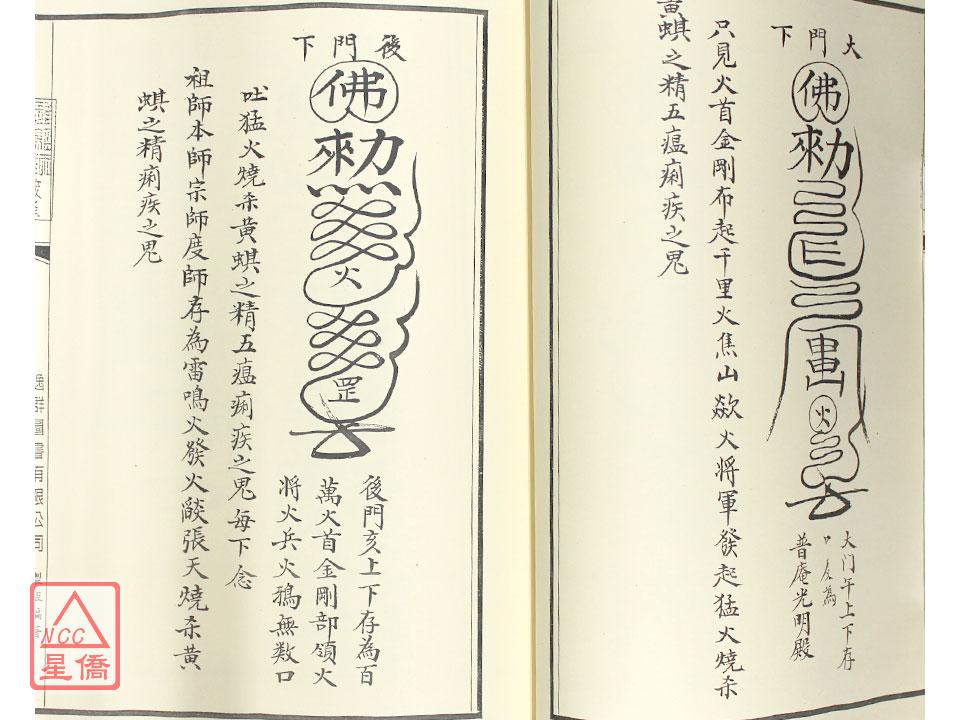 大門下
佛
勅
火
大门午上下存
普庵光明殿
只見火首金剛布起千里火焦山歘火將軍發起猛火燒杀
黄蜞之精五瘟痢疾之鬼
後門下
佛
勅
火
罡
後門亥上下存為百
萬火首金剛部領火
將火兵火鴉無数口
吐猛火燒杀黄蜞之精五瘟痢疾之鬼每下念
祖師本師宗師度師存為雷鳴火發火燄張天燒杀黄
蜞之精痢疾之鬼
逸群圖書有限公司
NCC
星僑